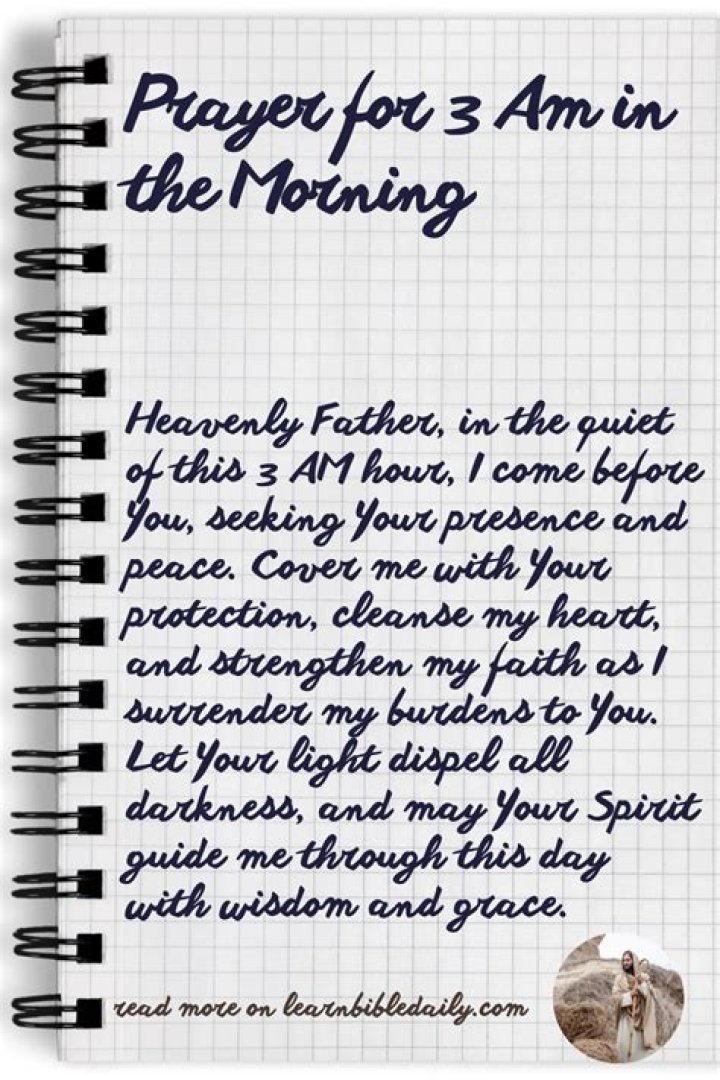 Prayer for 3 Am in
the Morning
Heavenly Father, in the quiet
of this 3 AM hour, I come before
You, seeking Your presence and
peace. Cover me with Your
protection, cleanse my heart,
and strengthen my faith as I
surrender my burdens to You.
Let Your light dispel all
darkness, and may Your Spirit
guide me through this day
with wisdom and grace.
read more on learnbibledaily.com